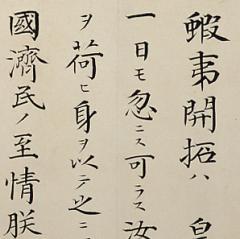 蝦夷開拓ハ皇
一日モ忽ニス可ラス汝
ヲ荷ヒ身ヲ以テ之ニ
國濟民ノ至情朕